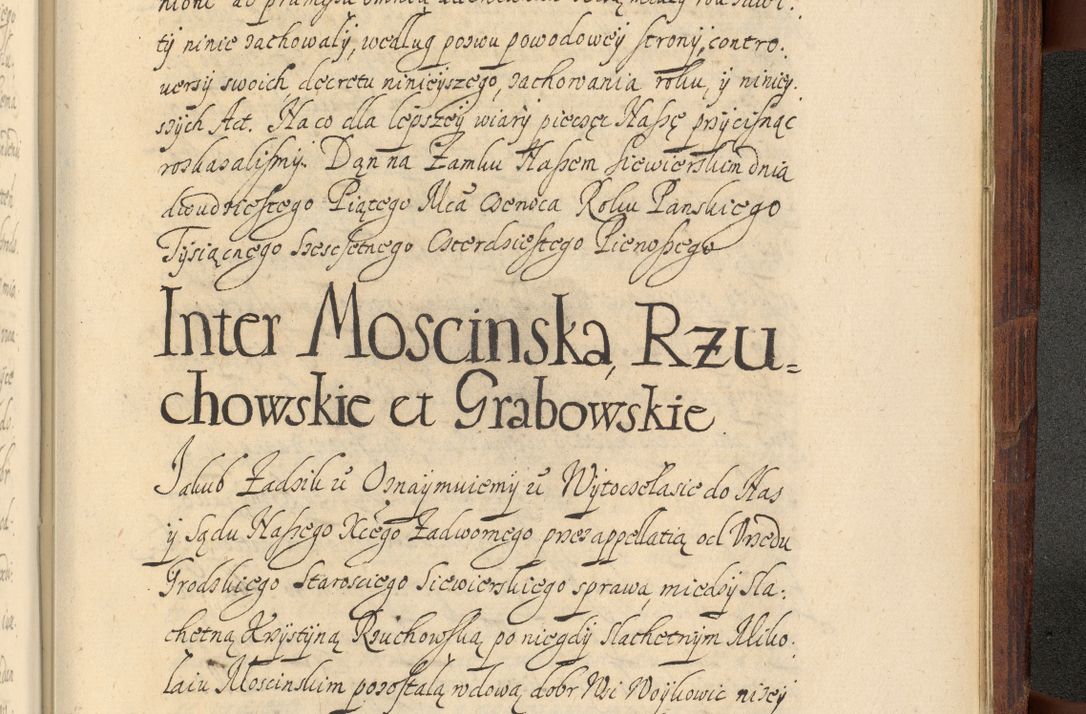 ty ninie zachowały, według pozwu powodowey strony, contro.
uersy swoich decretu ninieyszego, zachowania roku, y niniey.
szych Act. Na co dla lepszey wiary pieczęc Naszę przycisnąc
roskazalismy. Dan na Zamku Naszem Siewierskim dnia
dwudziestego Piątego Mca Czerwca Roku Panskiego
Tysiącnego szescsetnego Czterdziestego Pierwszego
Inter Moscinską, Rzu=
chowskie et Grabowskie
Jakub Zadzik etc Oznaymuiemy etc Wytoczełasie do Nas
y Sądu Naszego Xcego Zadwornego przez appellatią od Vrzedu
Grodzkiego Starosciego Siewierskiego sprawa, między Sla.
chetną Krzystyną Rzuchowską, po niegdy Slachetnym Miko.
łaiu Moscinskim pozostałą wdową, dobr Wsi Woykowic nizey